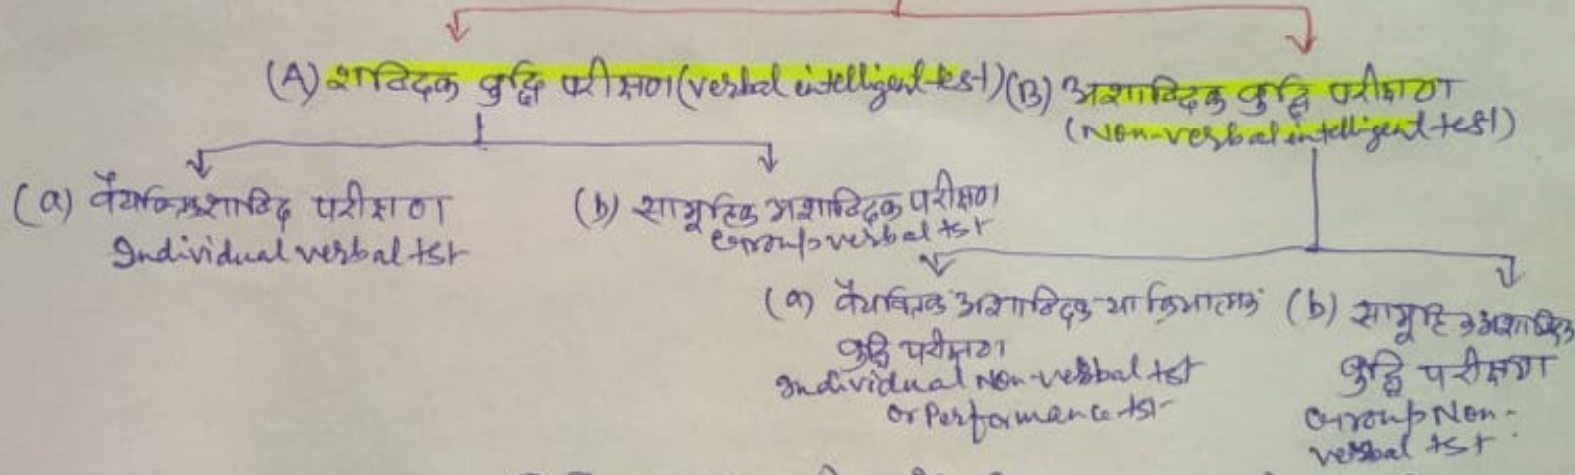 (A) शाब्दिक बुद्धि परीक्षण (verbal intelligent test) (B) अशाब्दिक बुद्धि परीक्षण
(Non-verbal intelligent test)
(a) वैयक्तिक शाब्दि परीक्षण
Individual verbal tst
(b) सामूहिक अशाब्दिक परीक्षण
Group verbal tst
(a) वैयक्तिक अशाब्दिक या क्रियात्मक
बुद्धि परीक्षण
Individual Non-verbal tst
or Performance tst
(b) सामूहिक अशाब्दिक
बुद्धि परीक्षण
Group Non-
verbal tst